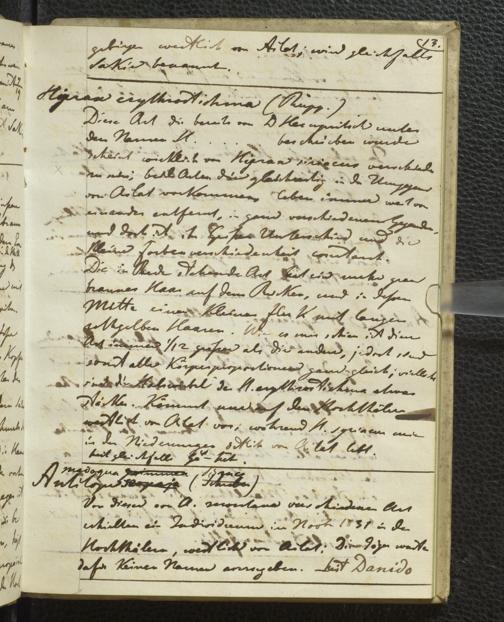 13.
gebirgen westlich von Ailet; wird gleichfalls
Sakie benannt.
Hyrax erythrostishma (Rüpp.)
Diese Art die bereits von D. Hesquitist unter
den Namen H. . . . . beschrieben wurde
scheint wirklich von Hyrax siriacus verschieden
zu sein; beide Arten die gleichzeitig in der Umgegend
von Ailet vorkommen, leben immer weit von
einander entfernt, in ganz verschiedenen Gegenden,
und doch ist ihr Unterschied und die
kleine Farbenverschiedenheit constant.
Die in Rede stehende Art hat ein mehr grau
braunes Haar auf dem Rücken, und in dessen
Mitte einen kleinen Fleck mit langen
gelben Haaren. Wie es mir schien ist diese
Art immer 1/12 größer als die andere, jedoch sind
sonst alle Körperproportionen ganz gleich; vielleicht
sind die bei H. erythrostishma etwas
stärker. Kommt nur auf den Hochthälern
westlich von Ailet vor; während H. syriacus nur
in den Niederungen östlich von Ailet lebt.
heißt gleichfalls
Antilope madoqua
Von dieser von A. montana verschiedenen Art
erhielten ein Individuum im Nov. 1831 in den
Hochthälern, westlich von Ailet. Die Jäger wußten
dafür keinen Namen anzugeben. heißt Danido